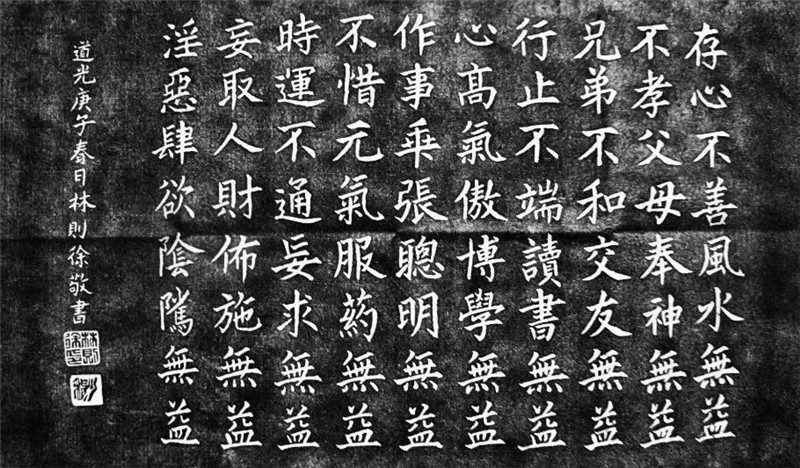 存心不善風水無益
不孝父母奉神無益
兄弟不和交友無益
行止不端讀書無益
心高氣傲博學無益
作事乖張聰明無益
不惜元氣服藥無益
時運不通妄求無益
妄取人財佈施無益
淫惡肆欲陰騭無益
道光庚子春日林則徐敬書
林則徐印